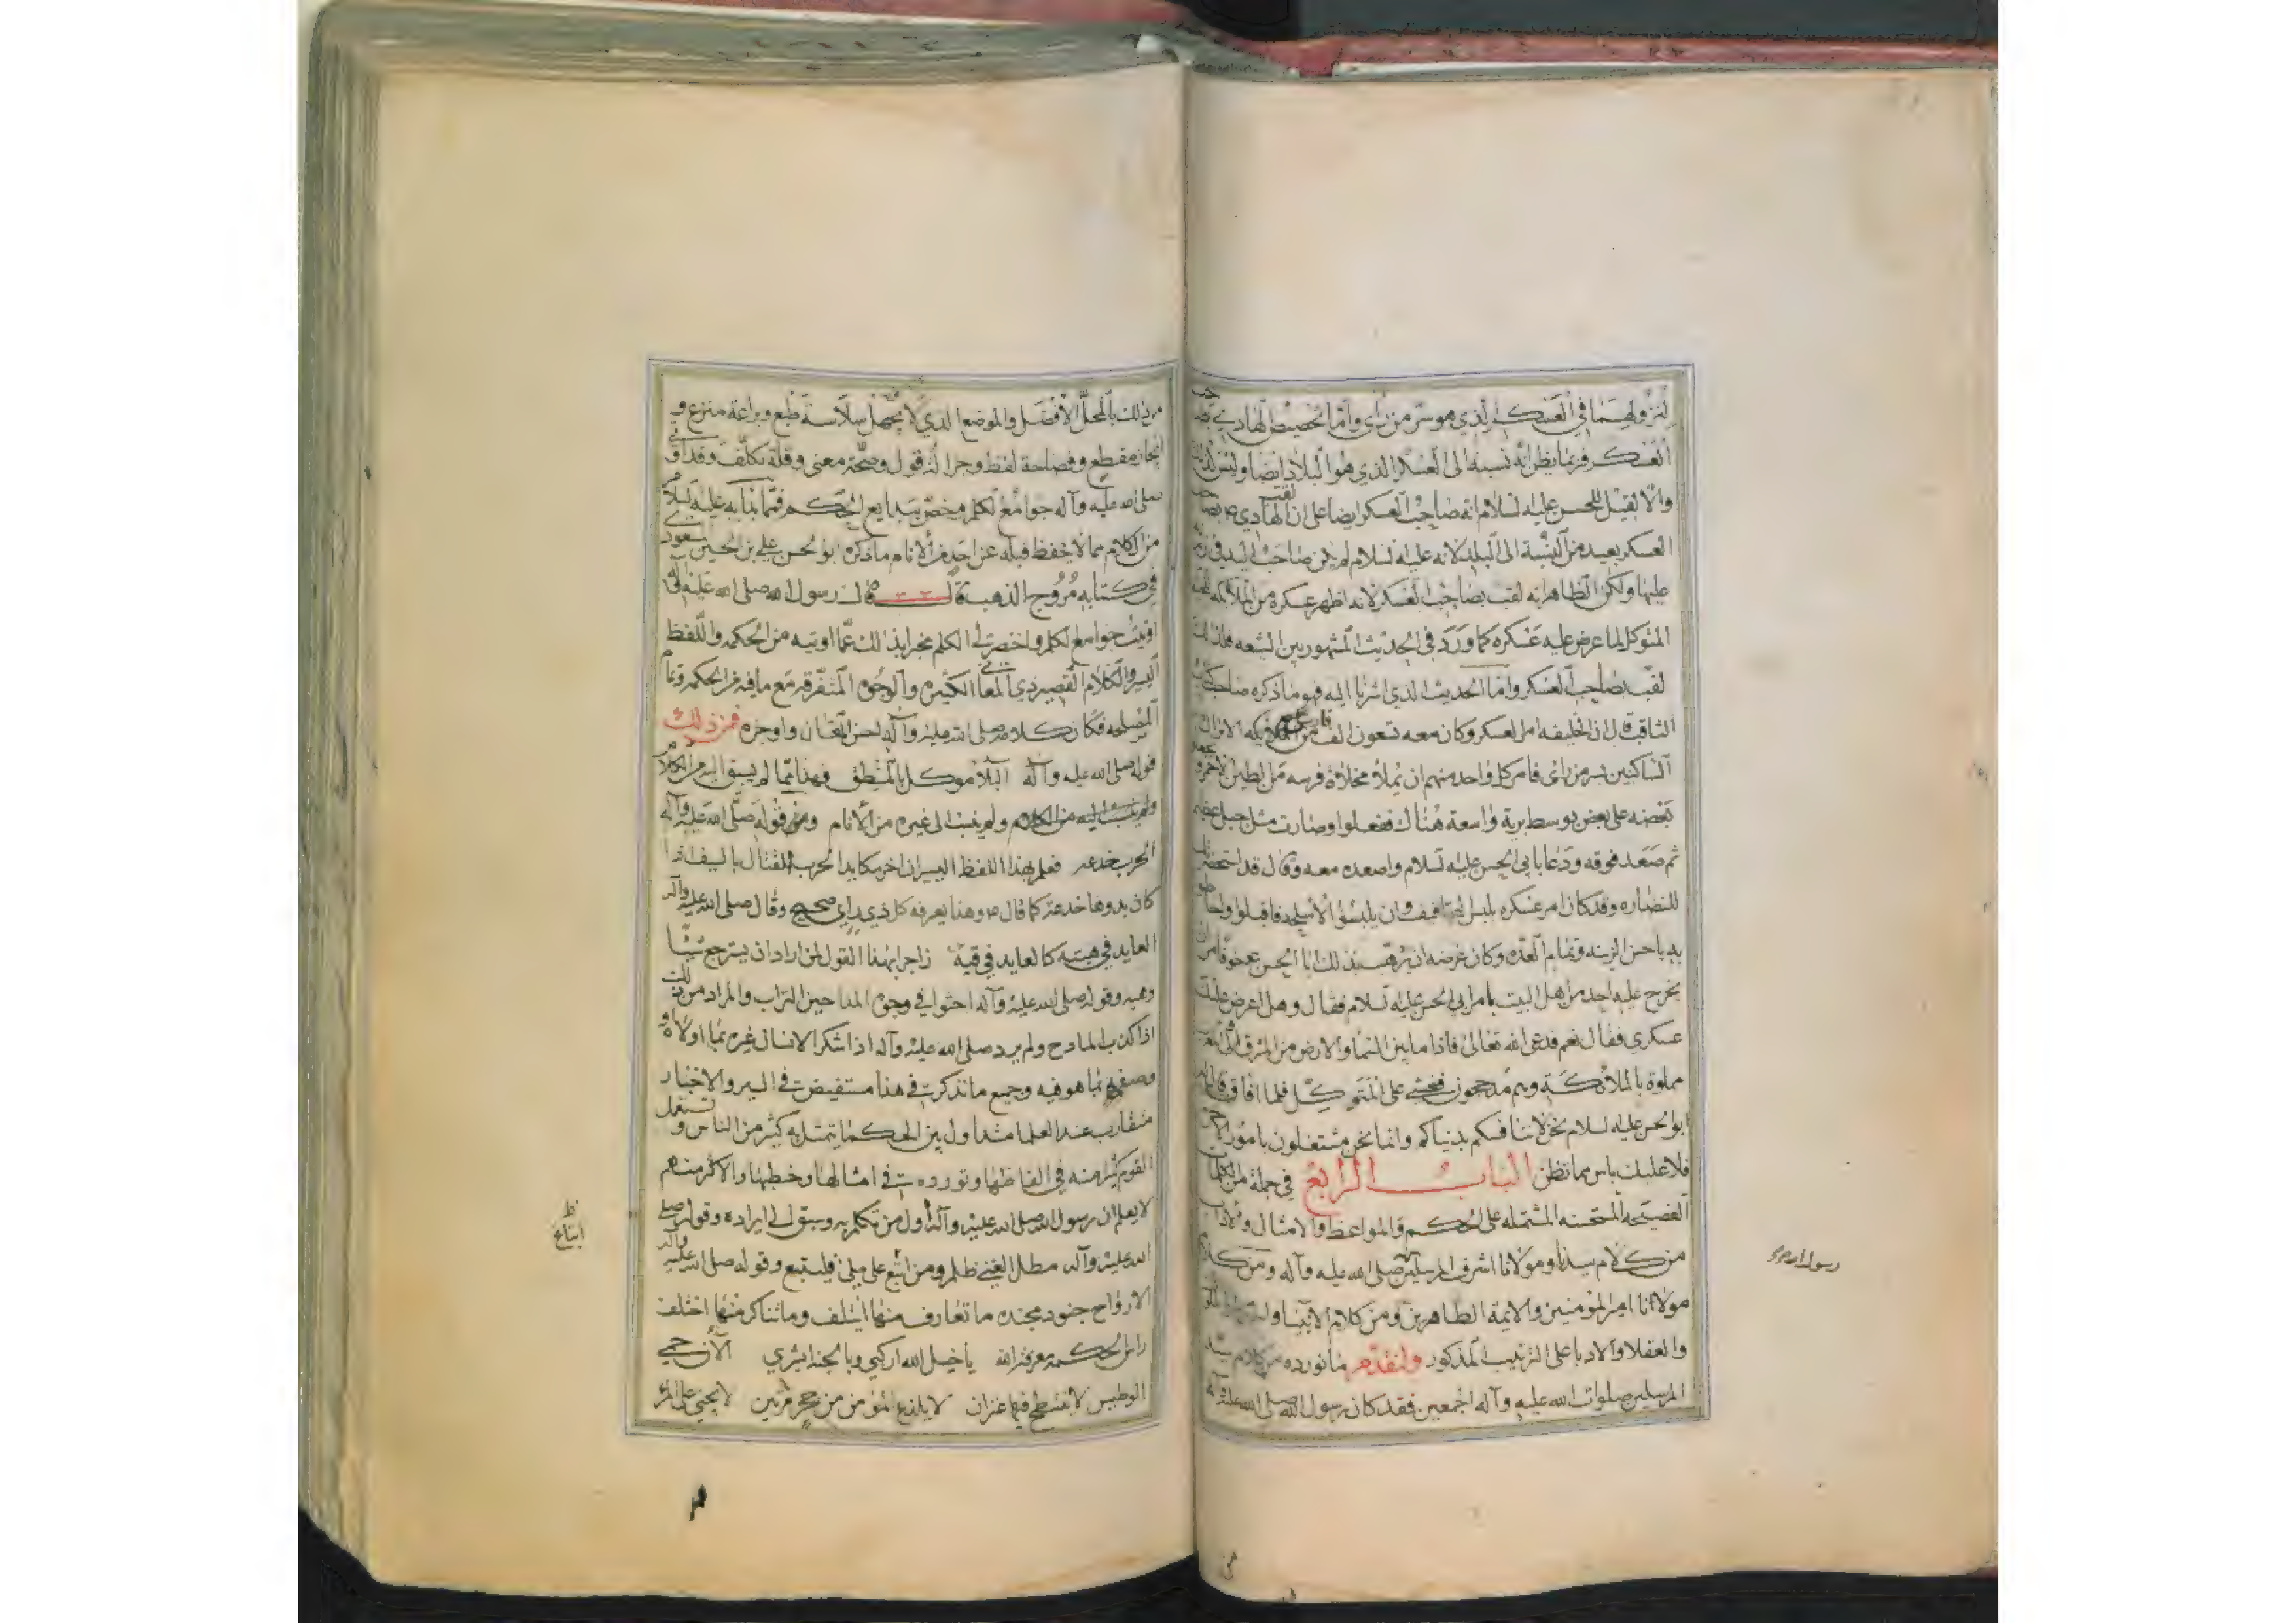 لنزولهما في العسكر الذي هو سر من رأى وأما تخصيص الهادي بصاحب
العسكر فربما يظن انه نسبه الى العسكر الذي هو البلاد ايضا وليس كذلك
والا لقيل للحسن عليه السلام انه صاحب العسكر ايضا على ان لقب الهادي بصاحب
العسكر بعيد من النسبة الى البلد لانه عليه السلام لم يكن صاحب البلد
عليها ولكن الظاهر انه لقب بصاحب العسكر لانه اظهر عسكره من الملائكة
المتوكل لما عرض عليه عسكره كما ورد في الحديث المشهور بين الشيعه فلذلك
لقب بصاحب العسكر واما الحديث الذي اشرنا اليه فهو ما ذكره صاحب كتاب
الثاقب قال ان الخليفه امر العسكر وكان معه تسعون الف فارس من الاتراك
الساكنين بسر من رأى فامر كل واحد منهم ان يملأ مخلاة فرسه من الطين الاحمر و
بعضه على بعض بوسط برية واسعة هناك ففعلوا وصارت مثل جبل عظيم
ثم صعد فوقه ودعا بابي الحسن عليه السلام واصعده معه وقال قد استحضرتك
للنضاره وقد كان امر عسكره بلبس التجافيف وان يلبسوا الاسلحه فاقبلوا واحاطوا
به باحسن الزينه وتمام العده وكان غرضه ان يرهب بذلك ابا الحسن ع خوفا من ان
يخرج عليه احد من اهل البيت بامر ابي الحسن عليه السلام فقال وهل اعرض عليك
عسكري فقال نعم فدعى الله تعالى فاذا ما بين السما والارض من المشرق الى المغرب
مملوة بالملائكة وهم مدججون فغشي على المتوكل فلما افاق قال له
ابو الحسن عليه السلام نحن لا ننافسكم بدنياكم وانما نحن مشتغلون بامور الاخرة
فلا عليك باس مما تظن الباب الرابع في جملة من الكلمات
الفصيحه المستحسنه المشتمله على الحكم والمواعظ والامثال والاداب
من كلام سيدنا ومولانا اشرف المرسلين صلى الله عليه وآله ومن كلام
مولانا امير المؤمنين والايمة الطاهرين ومن كلام الانبيا
والعقلا والادبا على الترتيب المذكور ولنقدم ما نورده من كلام سيد
المرسلين صلوات الله عليه وآله اجمعين فقد كان رسول الله صلى الله عليه وآله
رسول الله ص
من ذلك بالمحل الافضل والموضع الذي لا يجهل سلاسة طبع وبراعة منزع و
ايجاز مقطع وفصاحة لفظ وجزالة قول وصحة معنى وقلة تكلف وقد اوتي
صلى الله عليه وآله جوامع الكلم وخص ببدايع الحكم فمما بدأ به عليه السلام
من الكلام مما لا يحفظ قبله عن احد من الانام ما ذكره ابو الحسن علي بن الحسين المسعودي
في كتابه مروج الذهب قال قال رسول الله صلى الله عليه وآله
اوتيت جوامع الكلم واختصر لي الكلم مخبرا بذلك عما اوتيه من الحكمه واللفظ
اليسير والكلام القصير ذي المعاني الكثيره والوجوه المتفرقة مع ما فيه من الحكمه وتمام
المصلحه فكان كلامه صلى الله عليه وآله احسن المقال واوجزه فمن ذلك
قوله صلى الله عليه وآله البلا موكل بالمنطق فهذا مما لم يسبق اليه من الكلام
ولم ينسب الى غيره من الانام ومن قوله صلى الله عليه وآله
الحرب خدعه فعلم بهذا اللفظ اليسير ان اخر مكايد الحرب القتال بالسيف اذا
كان بدوها خدعة كما قال ص وهذا يعرفه كل ذي راي صحيح وقال صلى الله عليه وآله
العايد في هبته كالعايد في قيئه زاجرا بهذا القول لمن اراد ان يسترجع شيئا
وهبه وقوله صلى الله عليه وآله احثوا في وجوه المداحين التراب والمراد من ذلك
اذا كذب المادح ولم يرد صلى الله عليه وآله اذا شكر الانسان غيره بما اولاه و
وصفه بما هو فيه وجميع ما نذكره في هذا مستفيض في السير والاخبار
متقارب عند العلما متداول بين الحكما يتمثل به كثير من الناس وتستعمل
القوم كثيرا منه في الفاظها وتورده في امثالها وخطبها والاكثر منهم
لا يعلم ان رسول الله صلى الله عليه وآله اول من تكلم به وسبق الى ايراده وقوله صلى
الله عليه وآله مطل الغني ظلم ومن اتبع على ملئ فليتبع وقوله صلى الله عليه وآله
الارواح جنود مجنده ما تعارف منها ايتلف وما تناكر منها اختلف
راس الحكمة معرفة الله يا خيل الله اركبي وبالجنة ابشري الآن حمي
الوطيس لا ينتطح فيها عنزان لا يلدغ المؤمن من جحر مرتين لا يجني على المرء
ظ
اتباع